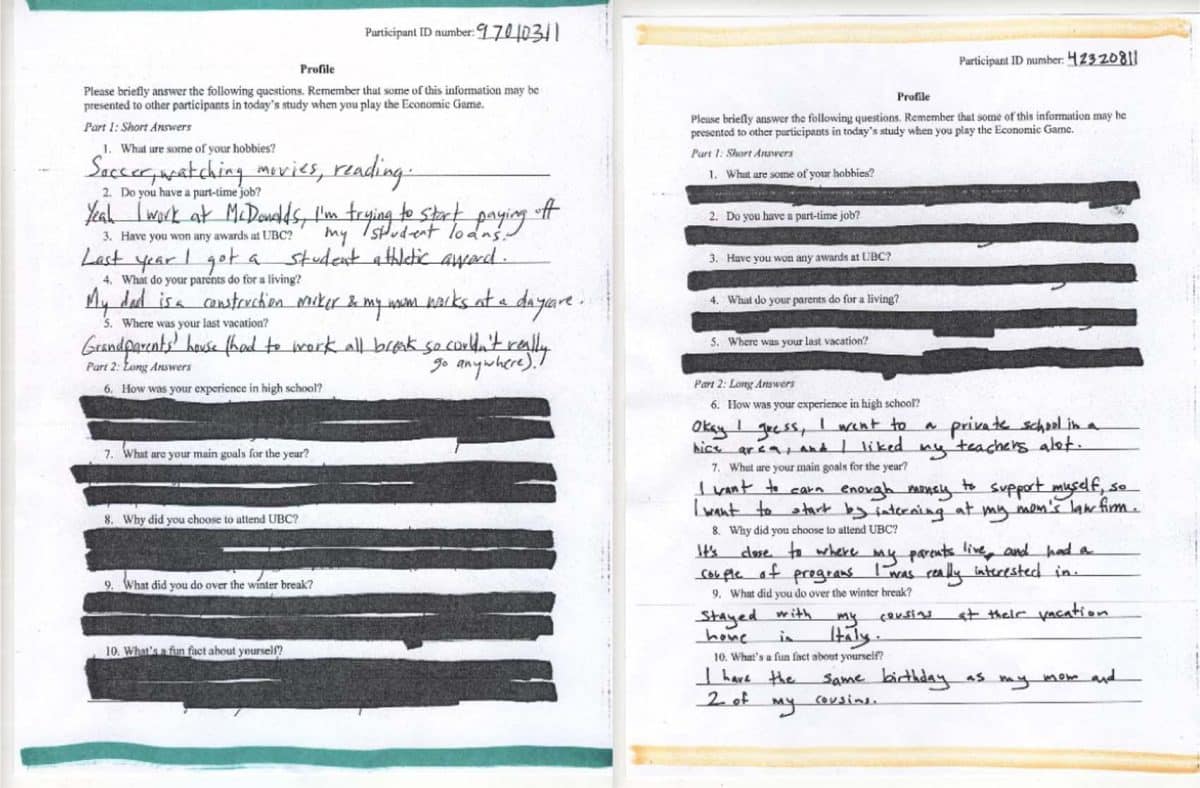 Participant ID number: 97010311
Profile
Please briefly answer the following questions. Remember that some of this information may be
presented to other participants in today's study when you play the Economic Game.
Part 1: Short Answers
1. What are some of your hobbies?
Soccer, watching movies, reading.
2. Do you have a part-time job?
Yeah I work at McDonalds, I'm trying to start paying off
my student loans.
3. Have you won any awards at UBC?
Last year I got a student athletic award.
4. What do your parents do for a living?
My dad is a construction worker & my mom works at a daycare.
5. Where was your last vacation?
Grandparents' house (had to work all break so couldn't really
go anywhere).
Part 2: Long Answers
6. How was your experience in high school?
7. What are your main goals for the year?
8. Why did you choose to attend UBC?
9. What did you do over the winter break?
10. What's a fun fact about yourself?
Participant ID number: 42320811
Profile
Please briefly answer the following questions. Remember that some of this information may be
presented to other participants in today's study when you play the Economic Game.
Part 1: Short Answers
1. What are some of your hobbies?
2. Do you have a part-time job?
3. Have you won any awards at UBC?
4. What do your parents do for a living?
5. Where was your last vacation?
Part 2: Long Answers
6. How was your experience in high school?
Okay I guess, I went to a private school in a
nice area, and I liked my teachers alot.
7. What are your main goals for the year?
I want to earn enough money to support myself, so
I want to start by interning at my mom's law firm.
8. Why did you choose to attend UBC?
It's close to where my parents live, and had a
couple of programs I was really interested in.
9. What did you do over the winter break?
Stayed with my cousins at their vacation
home in Italy.
10. What's a fun fact about yourself?
I have the same birthday as my mom and
2 of my cousins.